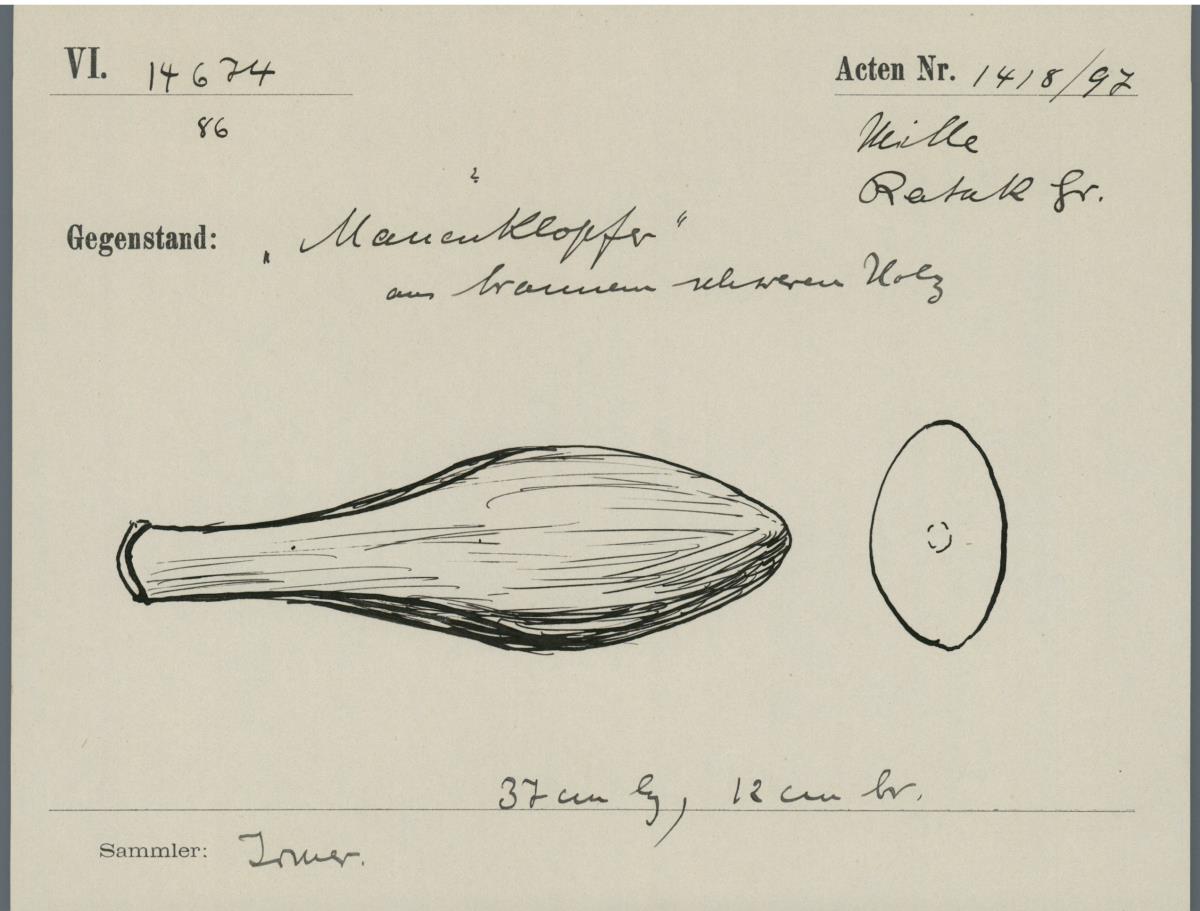 VI. 14674
Acten Nr. 1418/97
86
Mille
Ratak Gr.
?
Gegenstand: „Mauenklopfer“
aus braunem schweren Holz
37 cm lg, 12 cm br.
Sammler: Irmer.